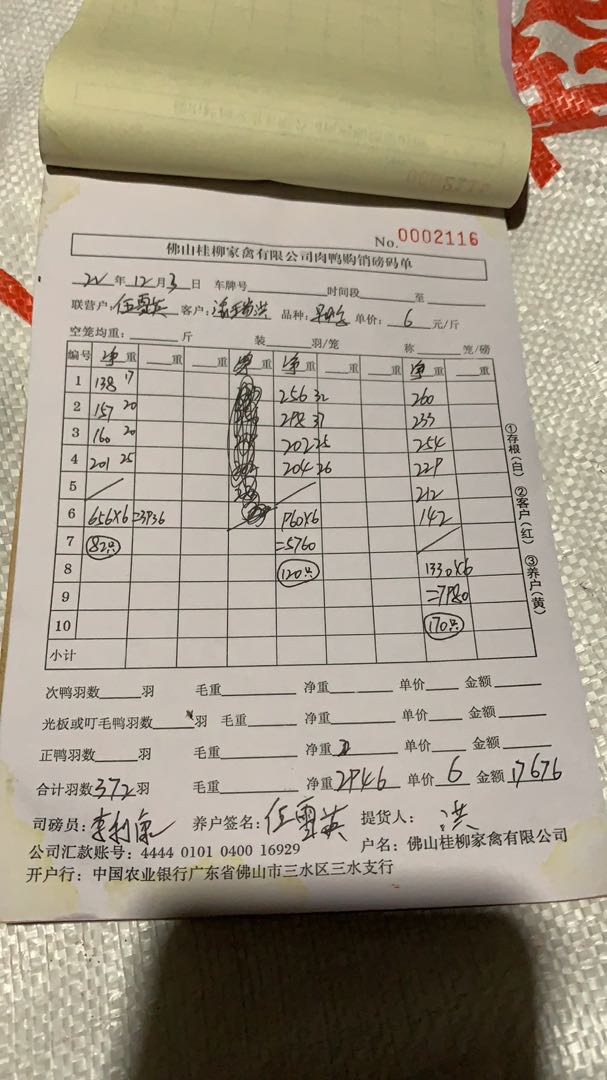 No. 0002116
佛山桂柳家禽有限公司肉鸭购销磅码单
年 12 月 3 日 车牌号 时间段 至
联营户: 伍雪英 客户: 洪 品种: 单价: 6 元/斤
空笼均重: 斤 装 羽/笼 称 笼/磅
编号 净重 重 重 净重 净重 重 重 净重 重
1 138 17 256 32 260
2 157 20 298 37 233
3 160 20 202 25 254
4 201 25 204 26 229
5 212
6 656×6=3936 960×6 142
7 82只 =5760
8 120只 1330×6
9 =7980
10 170只
小计
次鸭羽数 羽 毛重 净重 单价 金额
光板或叮毛鸭羽数 羽 毛重 净重 单价 金额
正鸭羽数 羽 毛重 净重 单价 金额
合计羽数 372 羽 毛重 净重 2946 单价 6 金额 17676
司磅员: 李利康 养户签名: 伍雪英 提货人: 洪
公司汇款账号: 4444 0101 0400 16929 户名: 佛山桂柳家禽有限公司
开户行: 中国农业银行广东省佛山市三水区三水支行
①存根(白) ②客户(红) ③养户(黄)